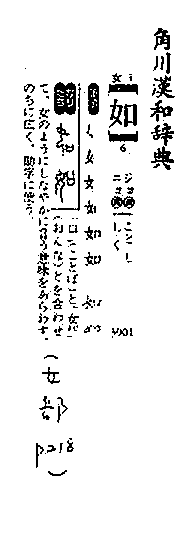 角川漢和辞典
女
3
如
6
ジョ
ニョ
ごとし
しく
3901
く 女 女 如 如 如
口(ことば)と、女
(おんな)とを合わせ
て、女のようにしなやかに従う意味をあらわす。
のちに広く、助字に使う。
(女部
P.218
)